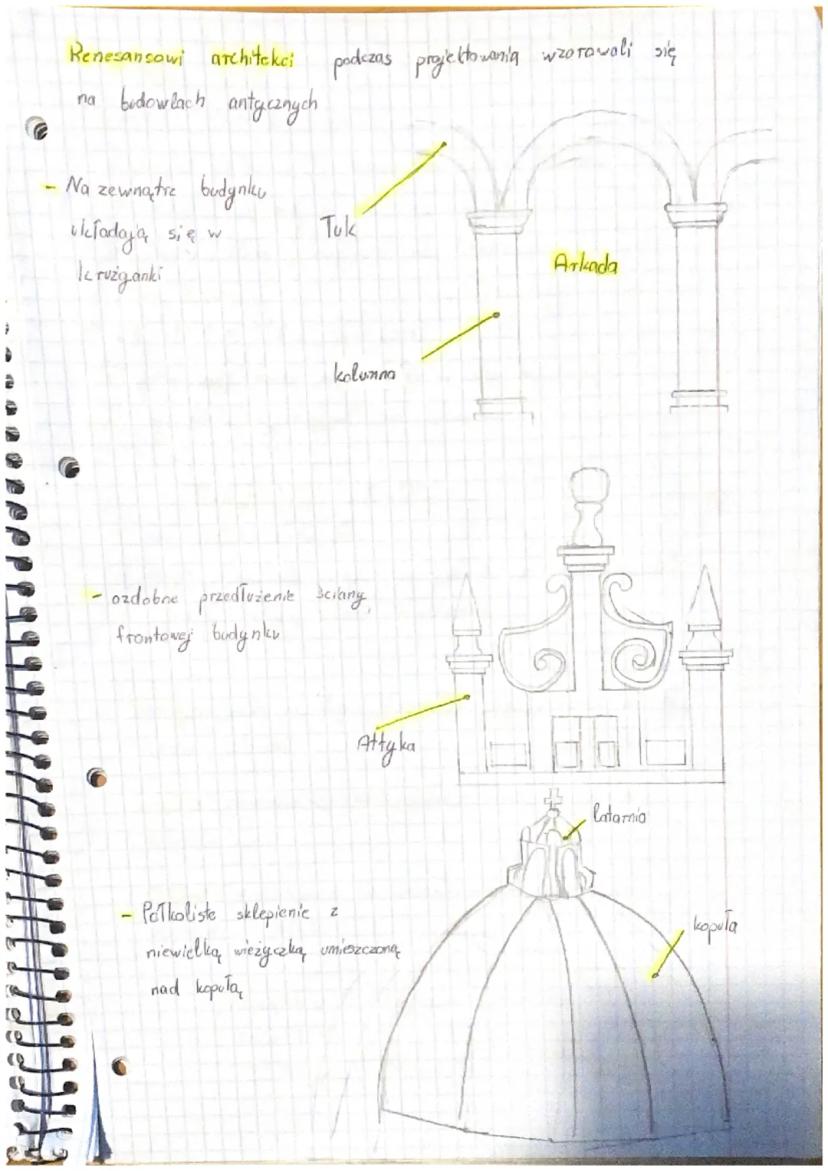 Renesansowi architekci podczas projektowania wzorowali się
na budowlach antycznych
- Na zewnątrz budynku
układają się w
krużganki
Łuk
Arkada
kolumna
- ozdobne przedłużenie ściany
frontowej budynku
Attyka
latarnia
- Półkoliste sklepienie z
niewielką wieżyczką umieszczoną
nad kopułą
kopuła